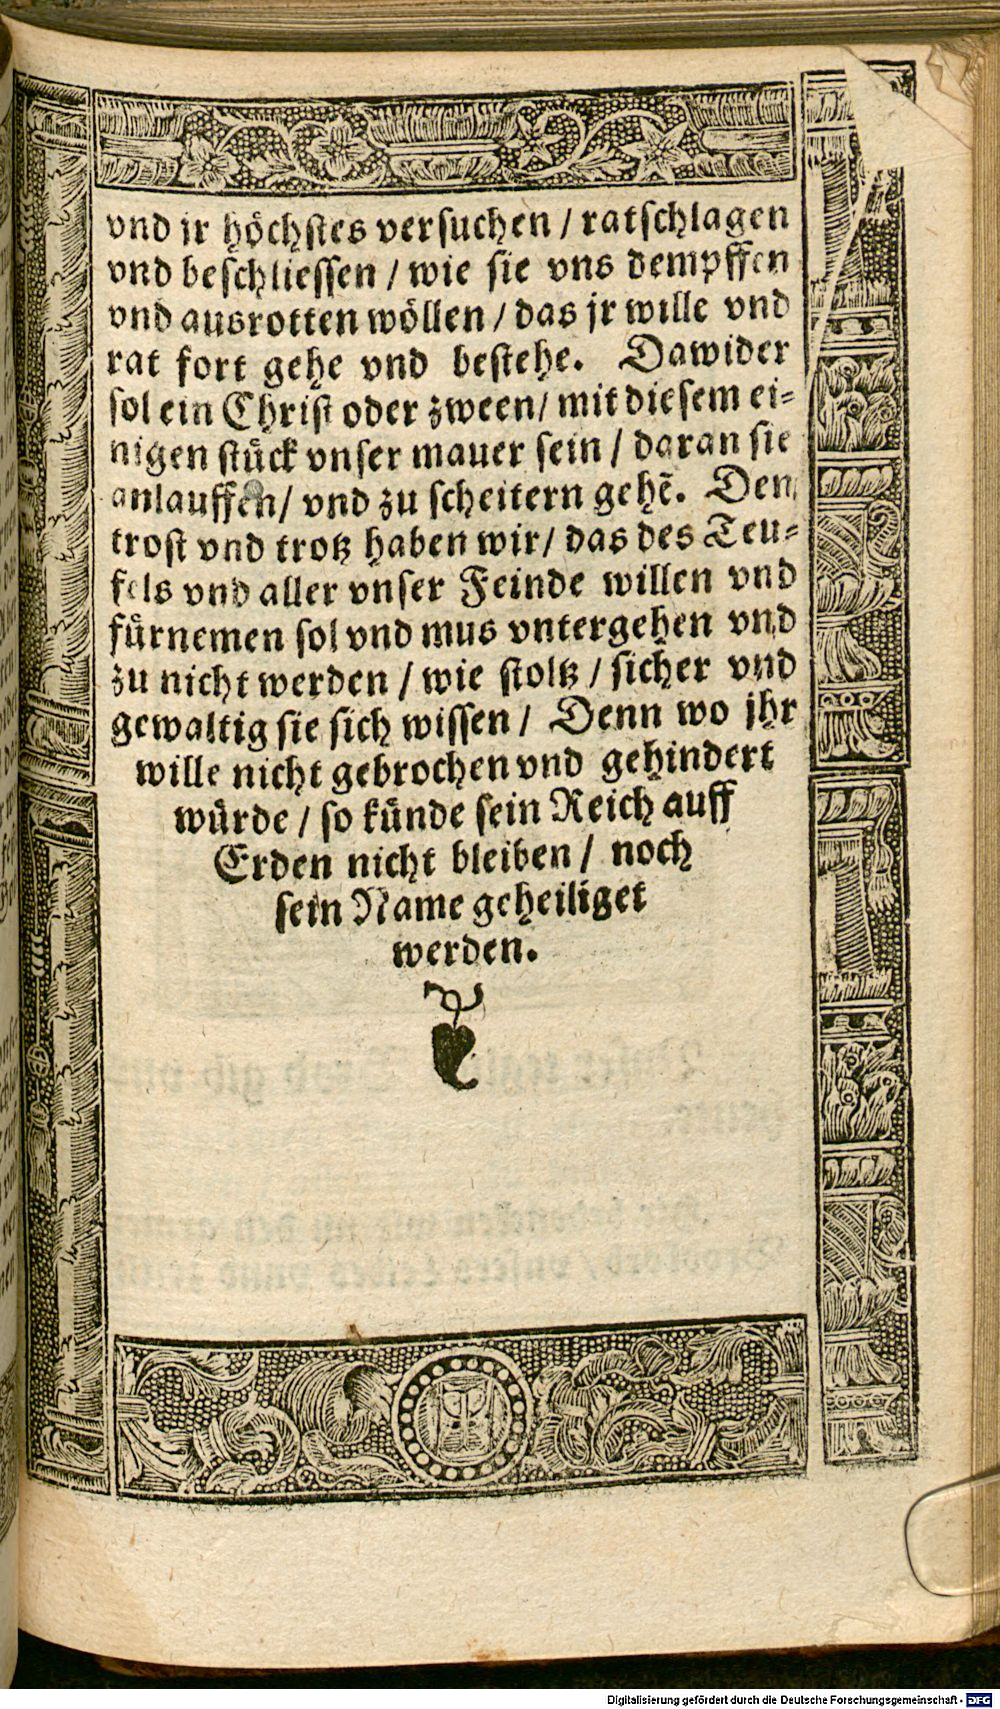 vnd jr höchſtes verſuchen / ratſchlagen
vnd beſchlieſſen / wie ſie vns dempffen
vnd ausrotten wöllen / das jr wille vnd
rat fort gehe vnd beſtehe. Dawider
ſol ein Chriſt oder zween / mit dieſem ei⸗
nigen ſtück vnſer mauer ſein / daran ſie
anlauffen / vnd zu ſcheitern gehẽ. Den
troſt vnd trotz haben wir / das des Teu⸗
fels vnd aller vnſer Feinde willen vnd
fürnemen ſol vnd mus vntergehen vnd
zu nicht werden / wie ſtoltz / ſicher vnd
gewaltig ſie ſich wiſſen / Denn wo jhr
wille nicht gebrochen vnd gehindert
würde / ſo künde ſein Reich auff
Erden nicht bleiben / noch
ſein Name geheiliget
werden.
Digitalisierung gefördert durch die Deutsche Forschungsgemeinschaft - DFG